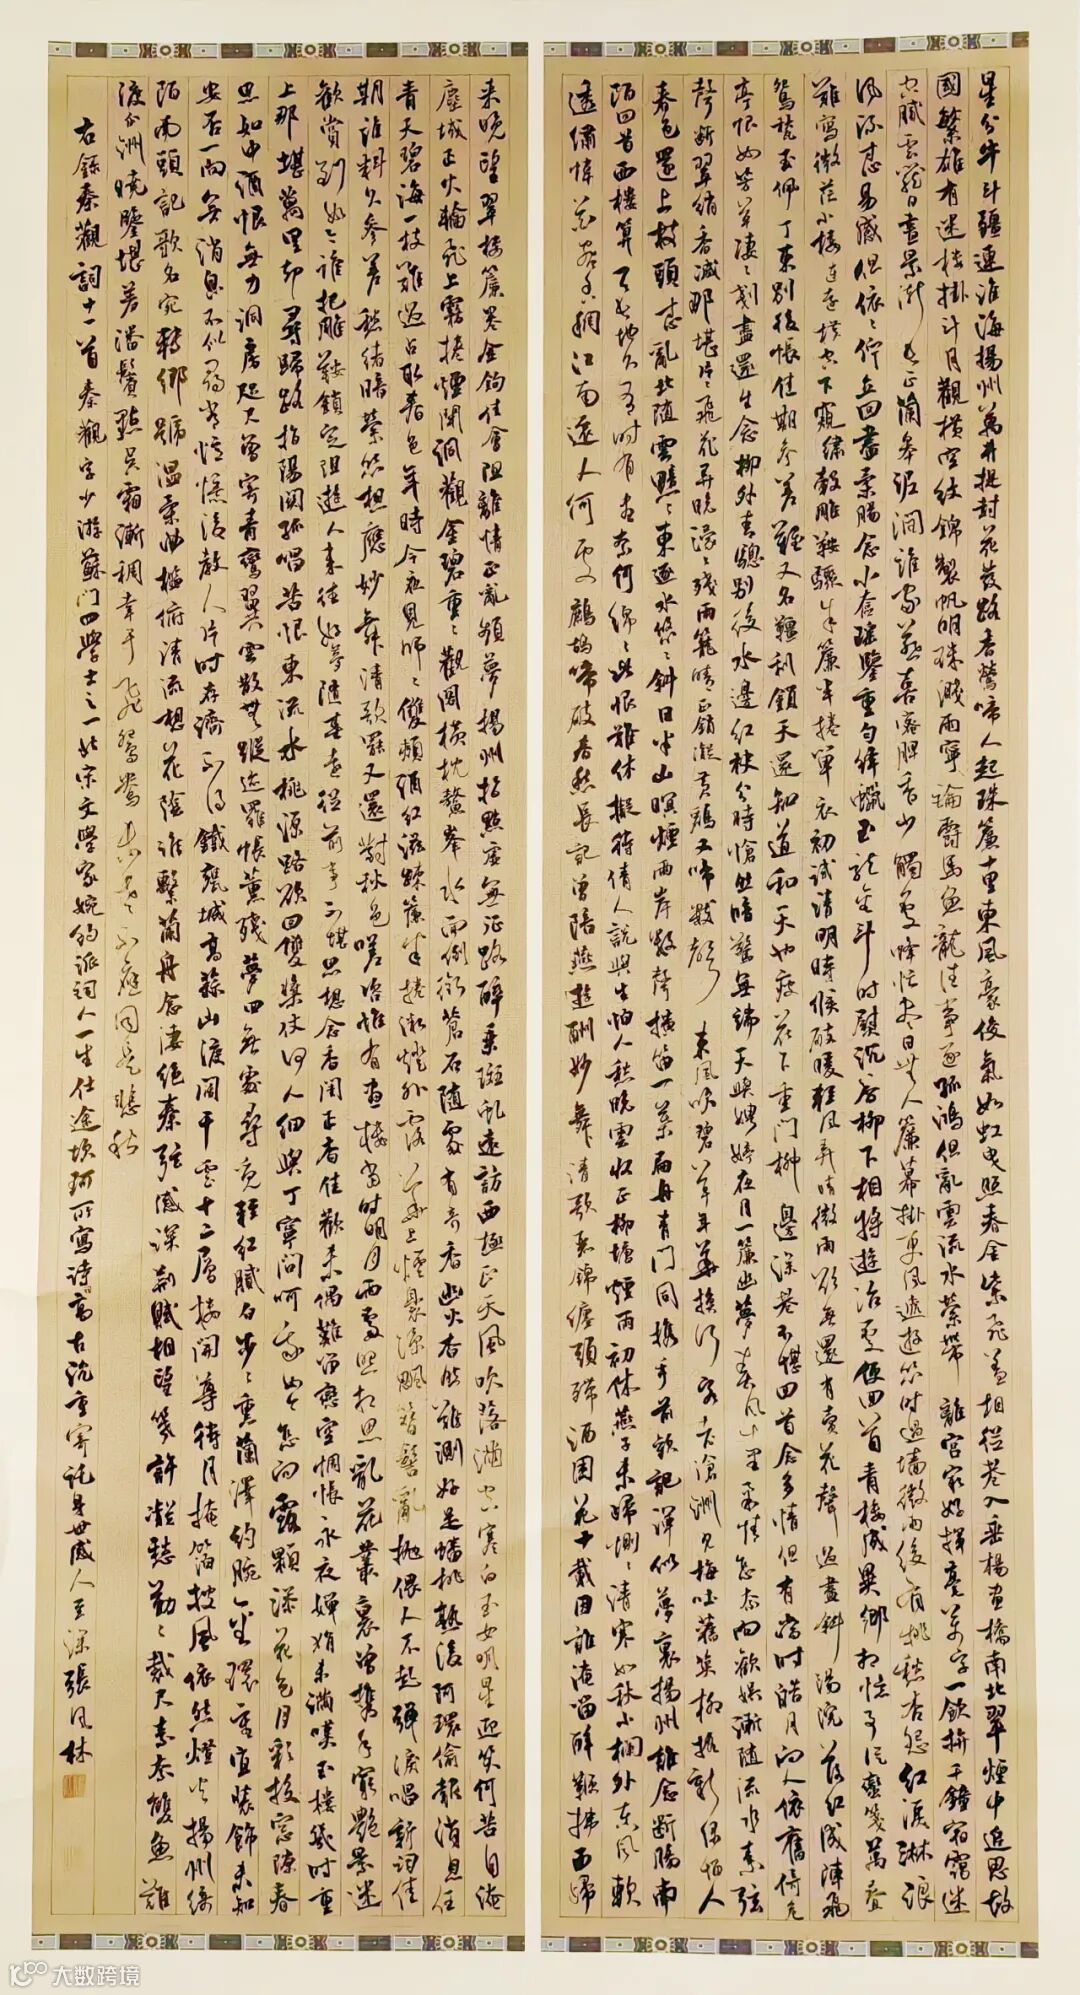 星分牛斗疆連淮海揚州萬井提封花發路香鶯啼人起珠簾十里東風豪俊氣如虹曳照春金紫飛蓋相從巷入垂楊畫橋南北翠煙中追思故
國繁雄有迷樓掛斗月觀橫空紋錦製帆明珠濺雨寧論爵馬魚龍往事逐孤鴻但亂雲流水縈帶離宮最好揮毫萬字一飲拚千鍾宿靄迷
空膩雲籠日晝景漸長正蘭皋泥潤誰家燕喜蜜脾香少觸處蜂忙盡日無人簾幕掛更風遞遊絲時過牆微雨後有桃愁杏怨紅淚淋浪
風流寸心易感但依依佇立回盡柔腸念小奩瑤鑒重勻絳蠟玉籠金斗時熨沉香柳下相將遊冶處便回首青樓成異鄉相憶事縱蠻箋萬疊
難寫微茫小樓連遠橫空下窺繡轂雕鞍驟朱簾半捲單衣初試清明時候破暖輕風弄晴微雨欲無還有賣花聲過盡斜陽院落紅成陣飛
鴛甃玉佩丁東別後悵佳期參差難又名韁利鎖天還知道和天也瘦花下重門柳邊深巷不堪回首念多情但有當時皓月向人依舊倚危
亭恨如芳草萋萋剗盡還生念柳外青驄別後水邊紅袂分時愴然暗驚無端天與娉婷夜月一簾幽夢春風十里柔情怎奈向歡娛漸隨流水素弦
聲斷翠綃香減那堪片片飛花弄晚濛濛殘雨籠晴正銷凝黃鸝又啼數聲東風吹碧草年華換行客老滄洲見梅吐舊英柳搖新綠惱人
春色還上枝頭寸心亂北隨雲黯黯東逐水悠悠斜日半山暝煙兩岸數聲橫笛一葉扁舟青門同攜手前歡記渾似夢裏揚州誰念斷腸南
陌回首西樓算天長地久有時有盡奈何綿綿此恨難休擬待倩人說與生怕人愁晚雲收正柳塘煙雨初休燕子未歸惻惻清寒如秋小欄外東風軟
透繡幃花蜜香稠江南遠人何處鷓鴣啼破春愁長記曾陪燕遊酬妙舞清歌麗錦纏頭殢酒困花十載因誰淹留醉鞭拂面歸
來晚望翠樓簾卷金鉤佳會阻離情正亂頻夢揚州指點虛無征路醉乘斑虬遠訪西極正天風吹落滿空寒白玉女明星迎笑何苦自淹
塵域正火輪飛上霧捲煙開洞觀金碧重重觀閣橫枕鰲峰水面倒銜蒼石隨處有奇香幽火杳然難測好是蟠桃熟後阿環偷報消息任
青天碧海一枝難遇占取春色年時今夜見師師雙頰酒紅滋疏簾半捲微燈外露華上煙裊涼颸簪髻亂拋偎人不起彈淚唱新詞佳
期誰料久參差愁緒暗縈絲想應妙舞清歌罷又還對秋色嗟咨惟有畫樓當時明月兩處照相思亂花叢裏曾攜手窮艷景迷
歡賞到如今誰把雕鞍鎖定阻遊人來往好夢隨春遠從前事不堪思想念香閨正杳佳歡未偶難留戀空惆悵永夜嬋娟未滿嘆玉樓幾時重
上那堪萬里卻尋歸路指陽關孤唱苦恨東流水桃源路欲回雙槳仗何人細與丁寧問呵我如今怎向露顆添花色月彩投窗隙春
思如中酒恨無力洞房咫尺曾寄青鸞翼雲散無蹤跡羅帳薰殘夢回無處尋覓輕紅膩白步步熏蘭澤約腕金環重宜裝飾未知
安否一向無消息不似尋常憶憶後教人片時存濟不得鐵甕城高蒜山渡闊干雲十二層樓開尊待月掩箔披風依然燈火揚州綺
陌南頭記歌名宛轉鄉號溫柔曲檻俯清流想花陰誰繫蘭舟念淒絕秦弦感深荊賦相望幾許凝愁勤勤裁尺素奈雙魚難
渡瓜洲曉鑒堪羞潘鬢點吳霜漸稠幸于飛鴛鴦未老不應同是悲秋
右錄秦觀詞十一首秦觀字少游蘇門四學士之一北宋文學家婉約派詞人一生仕途坎坷所寫詩高古沉重寄託身世感人至深張風林
大数跨境